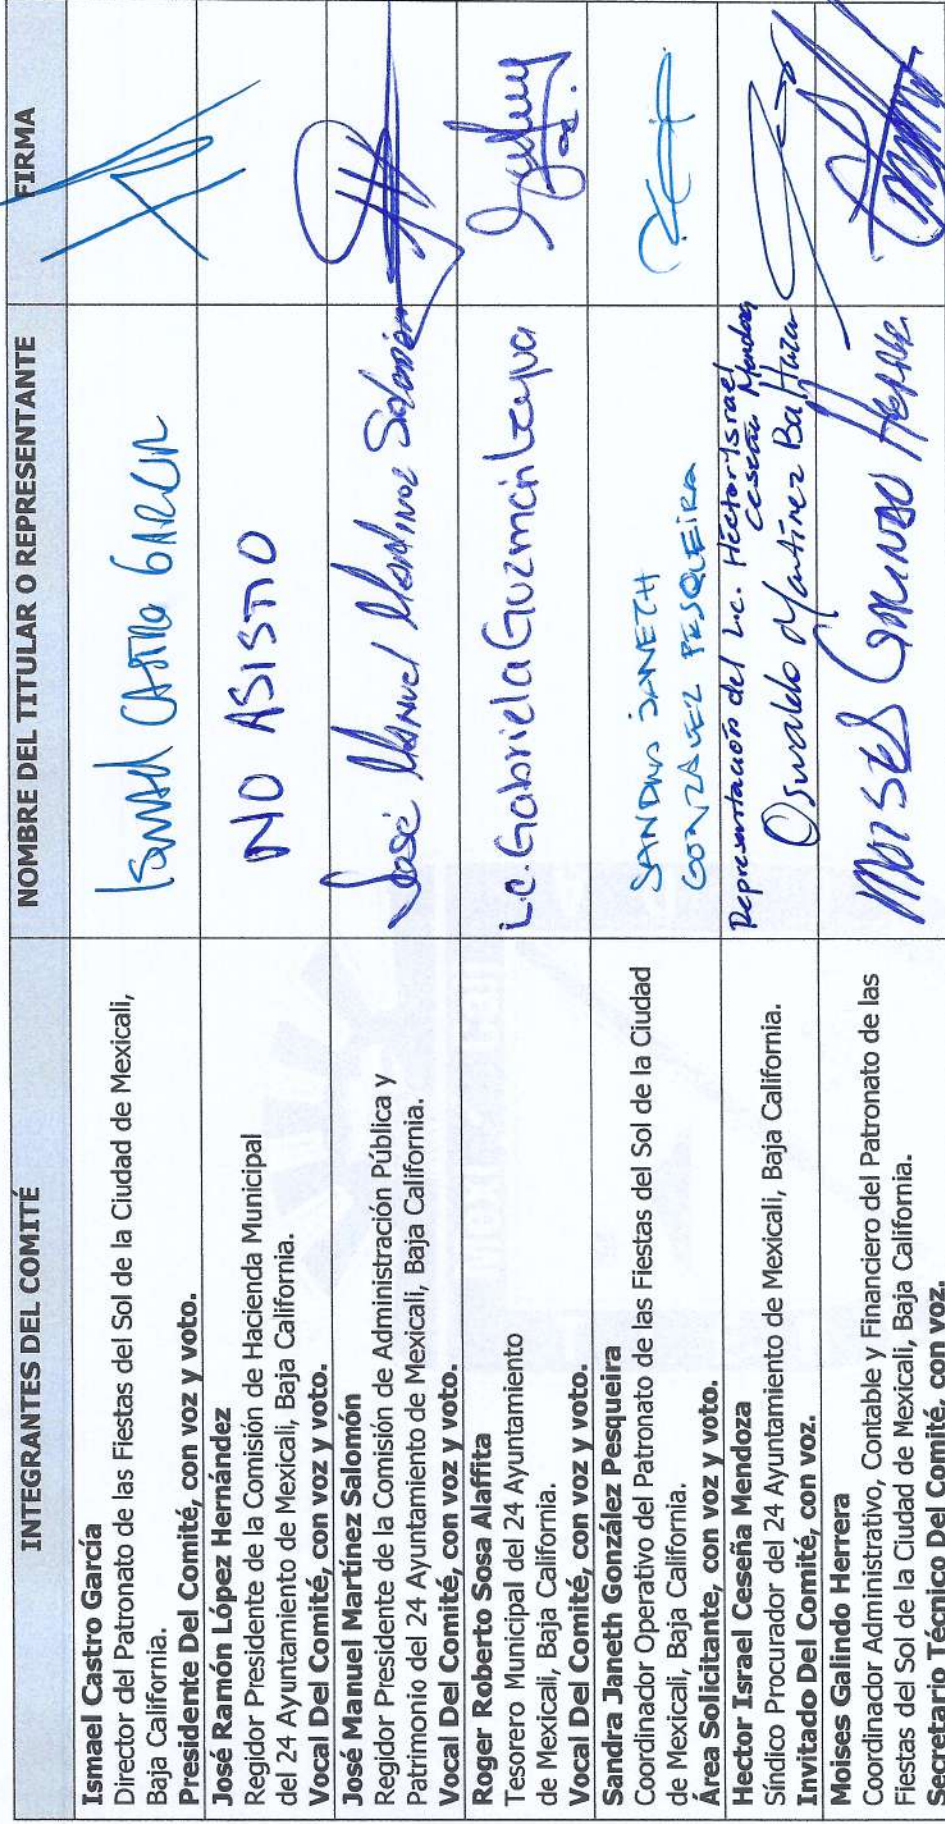 INTEGRANTES DEL COMITÉ
NOMBRE DEL TITULAR O REPRESENTANTE
FIRMA
Ismael Castro García
Director del Patronato de las Fiestas del Sol de la Ciudad de Mexicali,
Baja California.
Presidente Del Comité, con voz y voto.
Ismael Castro García
José Ramón López Hernández
Regidor Presidente de la Comisión de Hacienda Municipal
del 24 Ayuntamiento de Mexicali, Baja California.
Vocal Del Comité, con voz y voto.
NO ASISTIO
José Manuel Martínez Salomón
Regidor Presidente de la Comisión de Administración Pública y
Patrimonio del 24 Ayuntamiento de Mexicali, Baja California.
Vocal Del Comité, con voz y voto.
José Manuel Martínez Salomón
Roger Roberto Sosa Alaffita
Tesorero Municipal del 24 Ayuntamiento
de Mexicali, Baja California.
Vocal Del Comité, con voz y voto.
L.C. Gabriela Guzmán
Sandra Janeth González Pesqueira
Coordinador Operativo del Patronato de las Fiestas del Sol de la Ciudad
de Mexicali, Baja California.
Área Solicitante, con voz y voto.
SANDRA JANETH
GONZALEZ PESQUEIRA
Hector Israel Ceseña Mendoza
Síndico Procurador del 24 Ayuntamiento de Mexicali, Baja California.
Invitado Del Comité, con voz.
Representación del Lic. Hector Israel
Ceseña Mendoza
Osvaldo Martínez Baltazar
Moises Galindo Herrera
Coordinador Administrativo, Contable y Financiero del Patronato de las
Fiestas del Sol de la Ciudad de Mexicali, Baja California.
Secretario Técnico Del Comité, con voz.
Moises Galindo Herrera